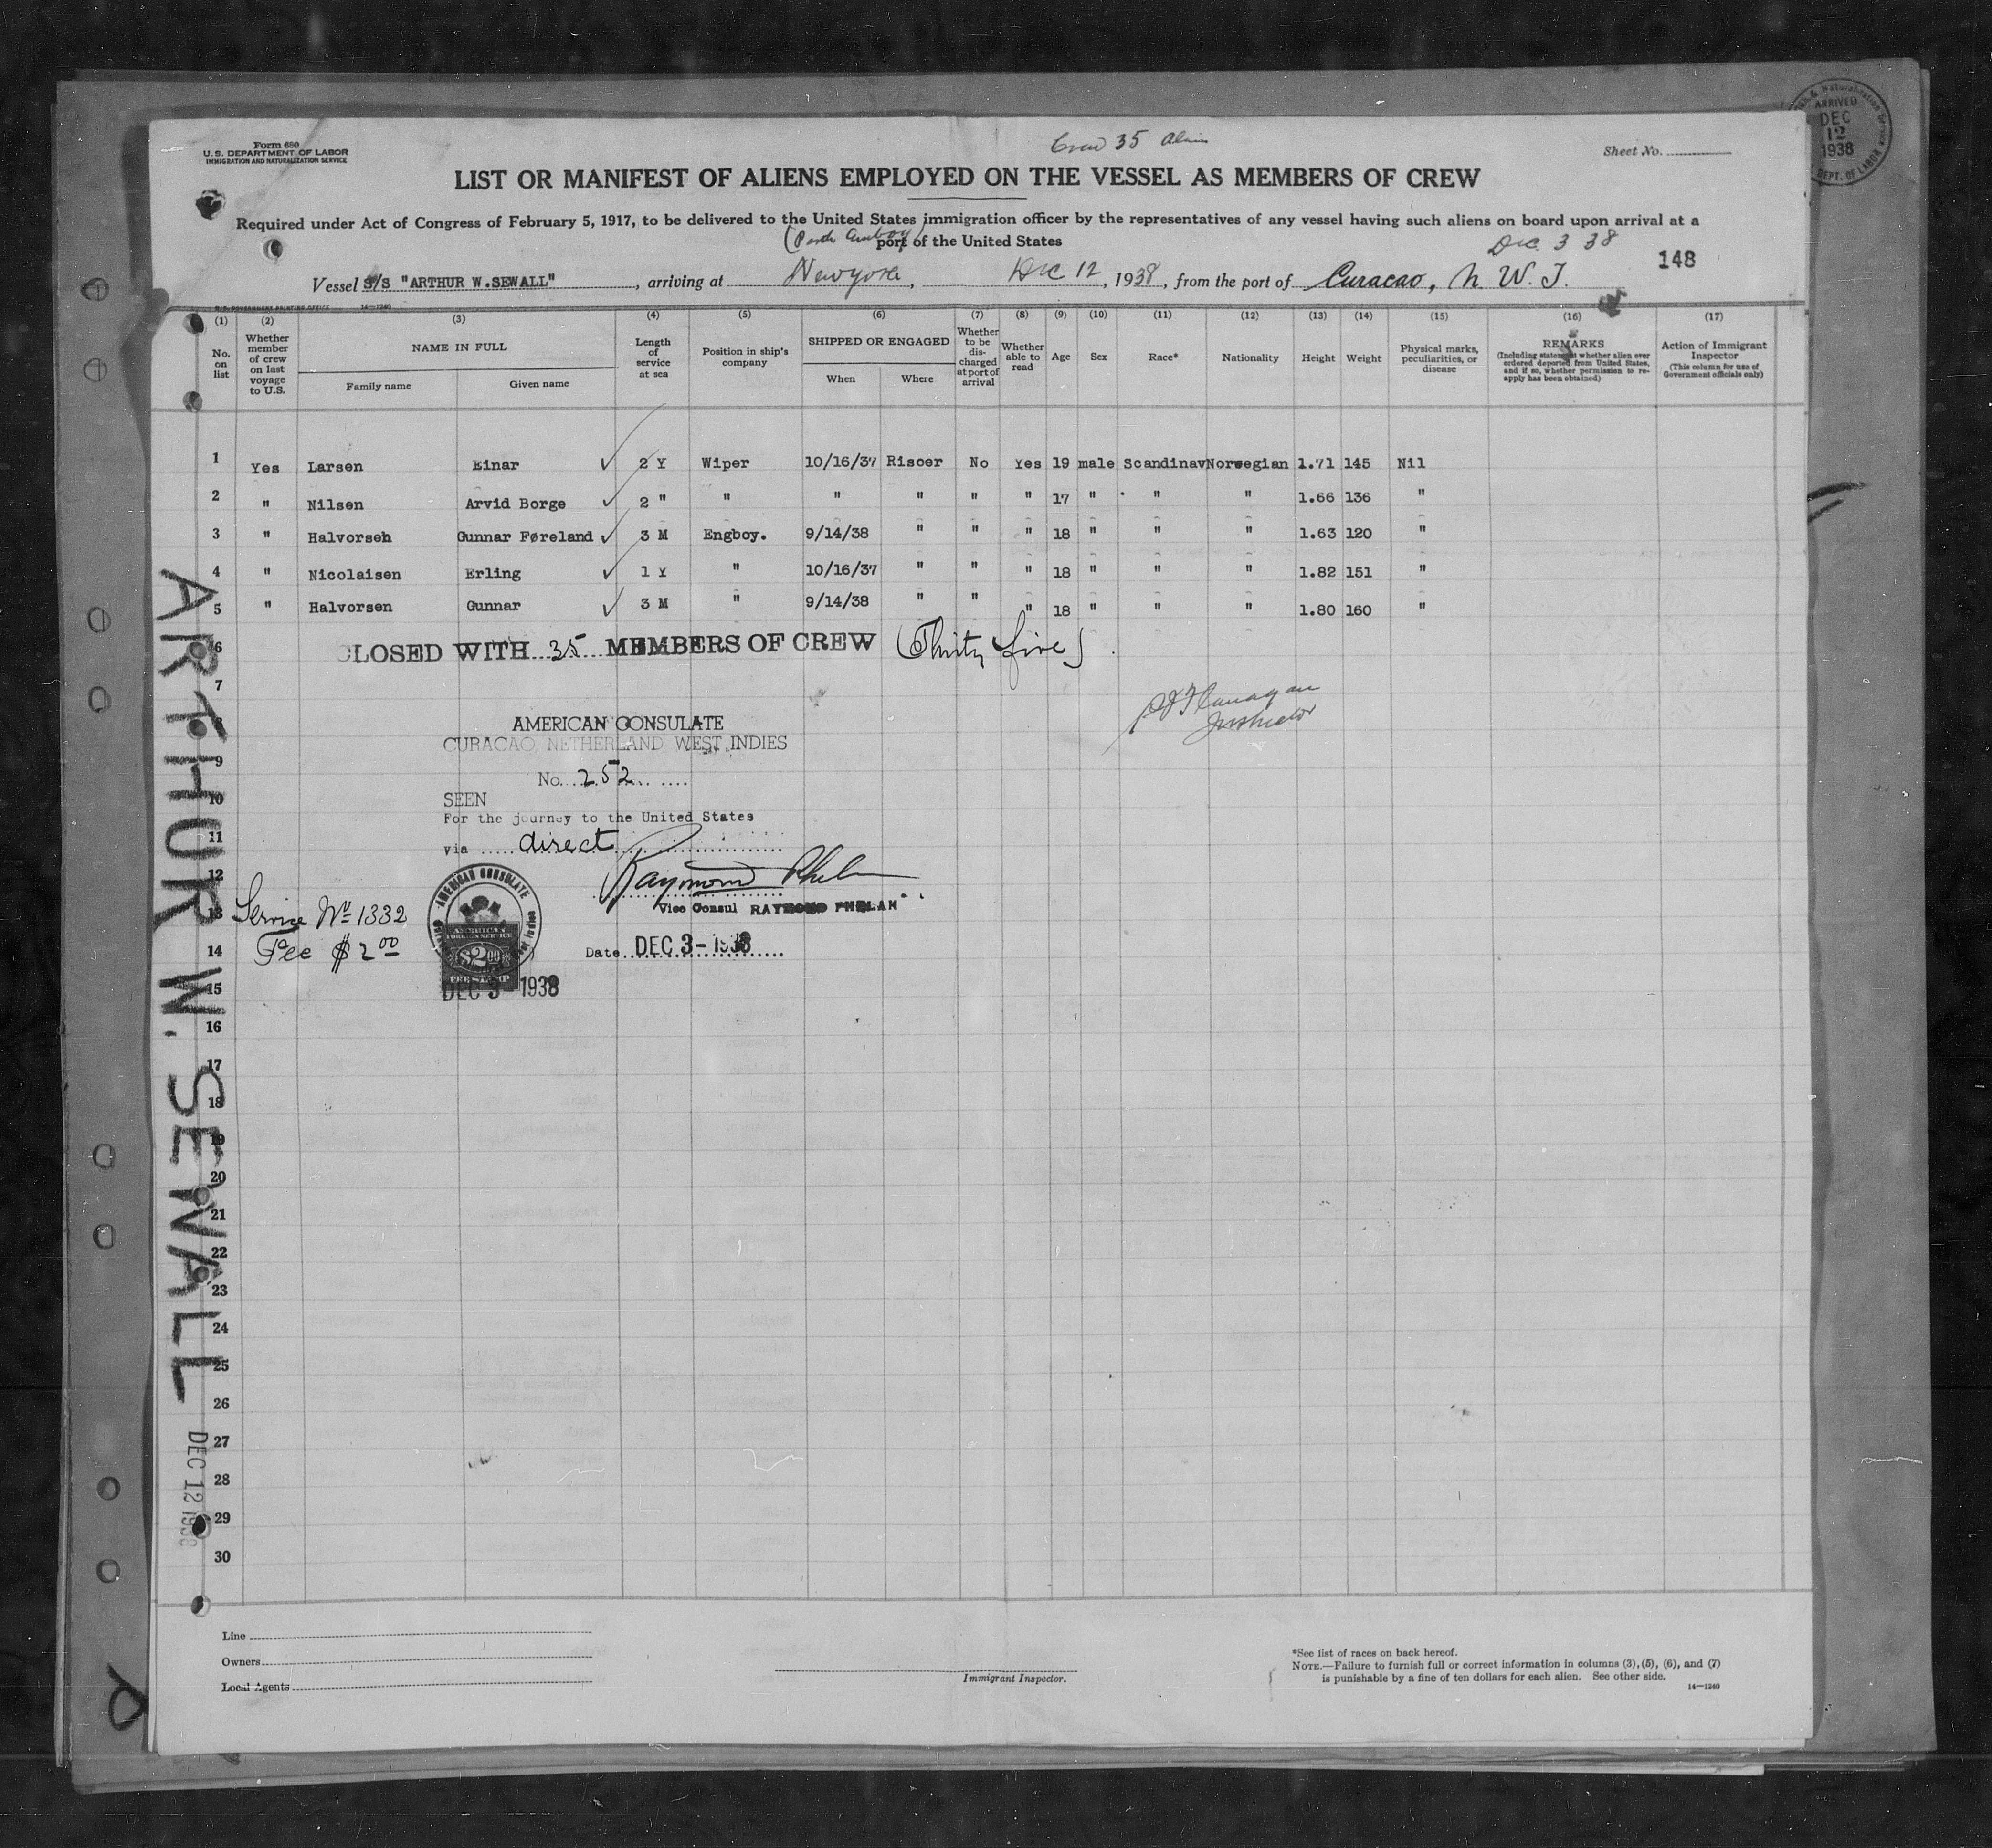 Form 680
U.S. DEPARTMENT OF LABOR
IMMIGRATION AND NATURALIZATION SERVICE
Crew 35 Alien
Sheet No.
ARRIVED
DEC
12
1938
DEPT. OF LABOR
LIST OR MANIFEST OF ALIENS EMPLOYED ON THE VESSEL AS MEMBERS OF CREW
Required under Act of Congress of February 5, 1917, to be delivered to the United States immigration officer by the representatives of any vessel having such aliens on board upon arrival at a
port of the United States
(Perth Amboy)
Dec. 3 38
148
Vessel S/S "ARTHUR W.SEWALL", arriving at New York, Dec 12, 1938, from the port of Curacao, N. W. I.
U.S. GOVERNMENT PRINTING OFFICE 14—1240
(1) (2) (3) (4) (5) (6) (7) (8) (9) (10) (11) (12) (13) (14) (15) (16) (17)
No. on list
Whether member of crew on last voyage to U.S.
NAME IN FULL
Family name
Given name
Length of service at sea
Position in ship's company
SHIPPED OR ENGAGED
When
Where
Whether to be discharged at port of arrival
Whether able to read
Age
Sex
Race*
Nationality
Height
Weight
Physical marks, peculiarities, or disease
REMARKS
(Including statement whether alien ever ordered deported from United States, and if so, whether permission to reapply has been obtained)
Action of Immigrant Inspector
(This column for use of Government officials only)
1 Yes Larsen Einar ✓ 2 Y Wiper 10/16/37 Risoer No Yes 19 male Scandinav Norwegian 1.71 145 Nil
2 " Nilsen Arvid Borge ✓ 2 " " " " " " 17 " " " 1.66 136 "
3 " Halvorsen Gunnar Føreland ✓ 3 M Engboy. 9/14/38 " " " 18 " " " 1.63 120 "
4 " Nicolaisen Erling ✓ 1 Y " 10/16/37 " " " 18 " " " 1.82 151 "
5 " Halvorsen Gunnar ✓ 3 M " 9/14/38 " " " 18 " " " 1.80 160 "
6 CLOSED WITH 35 MEMBERS OF CREW (Thirty five)
7
Flanagan
Inspector
8
AMERICAN CONSULATE
CURACAO, NETHERLAND WEST INDIES
9
No. 252
10
SEEN
For the journey to the United States
11
via direct
12
Raymond Phelan
Vice Consul RAYMOND PHELAN
13
Service No 1332
14
Fee $2.00
AMERICAN CONSULATE
AMERICAN
FOREIGN SERVICE
$2.00
FEE STAMP
Date DEC 3 - 1938
DEC 3 - 1938
15
16
17
18
19
20
21
22
23
24
25
26
27
28
29
30
ARTHUR W. SEWALL
DEC 12 1938
Line
Owners
Local Agents
Immigrant Inspector.
*See list of races on back hereof.
NOTE.—Failure to furnish full or correct information in columns (3), (5), (6), and (7)
is punishable by a fine of ten dollars for each alien. See other side.
14—1240